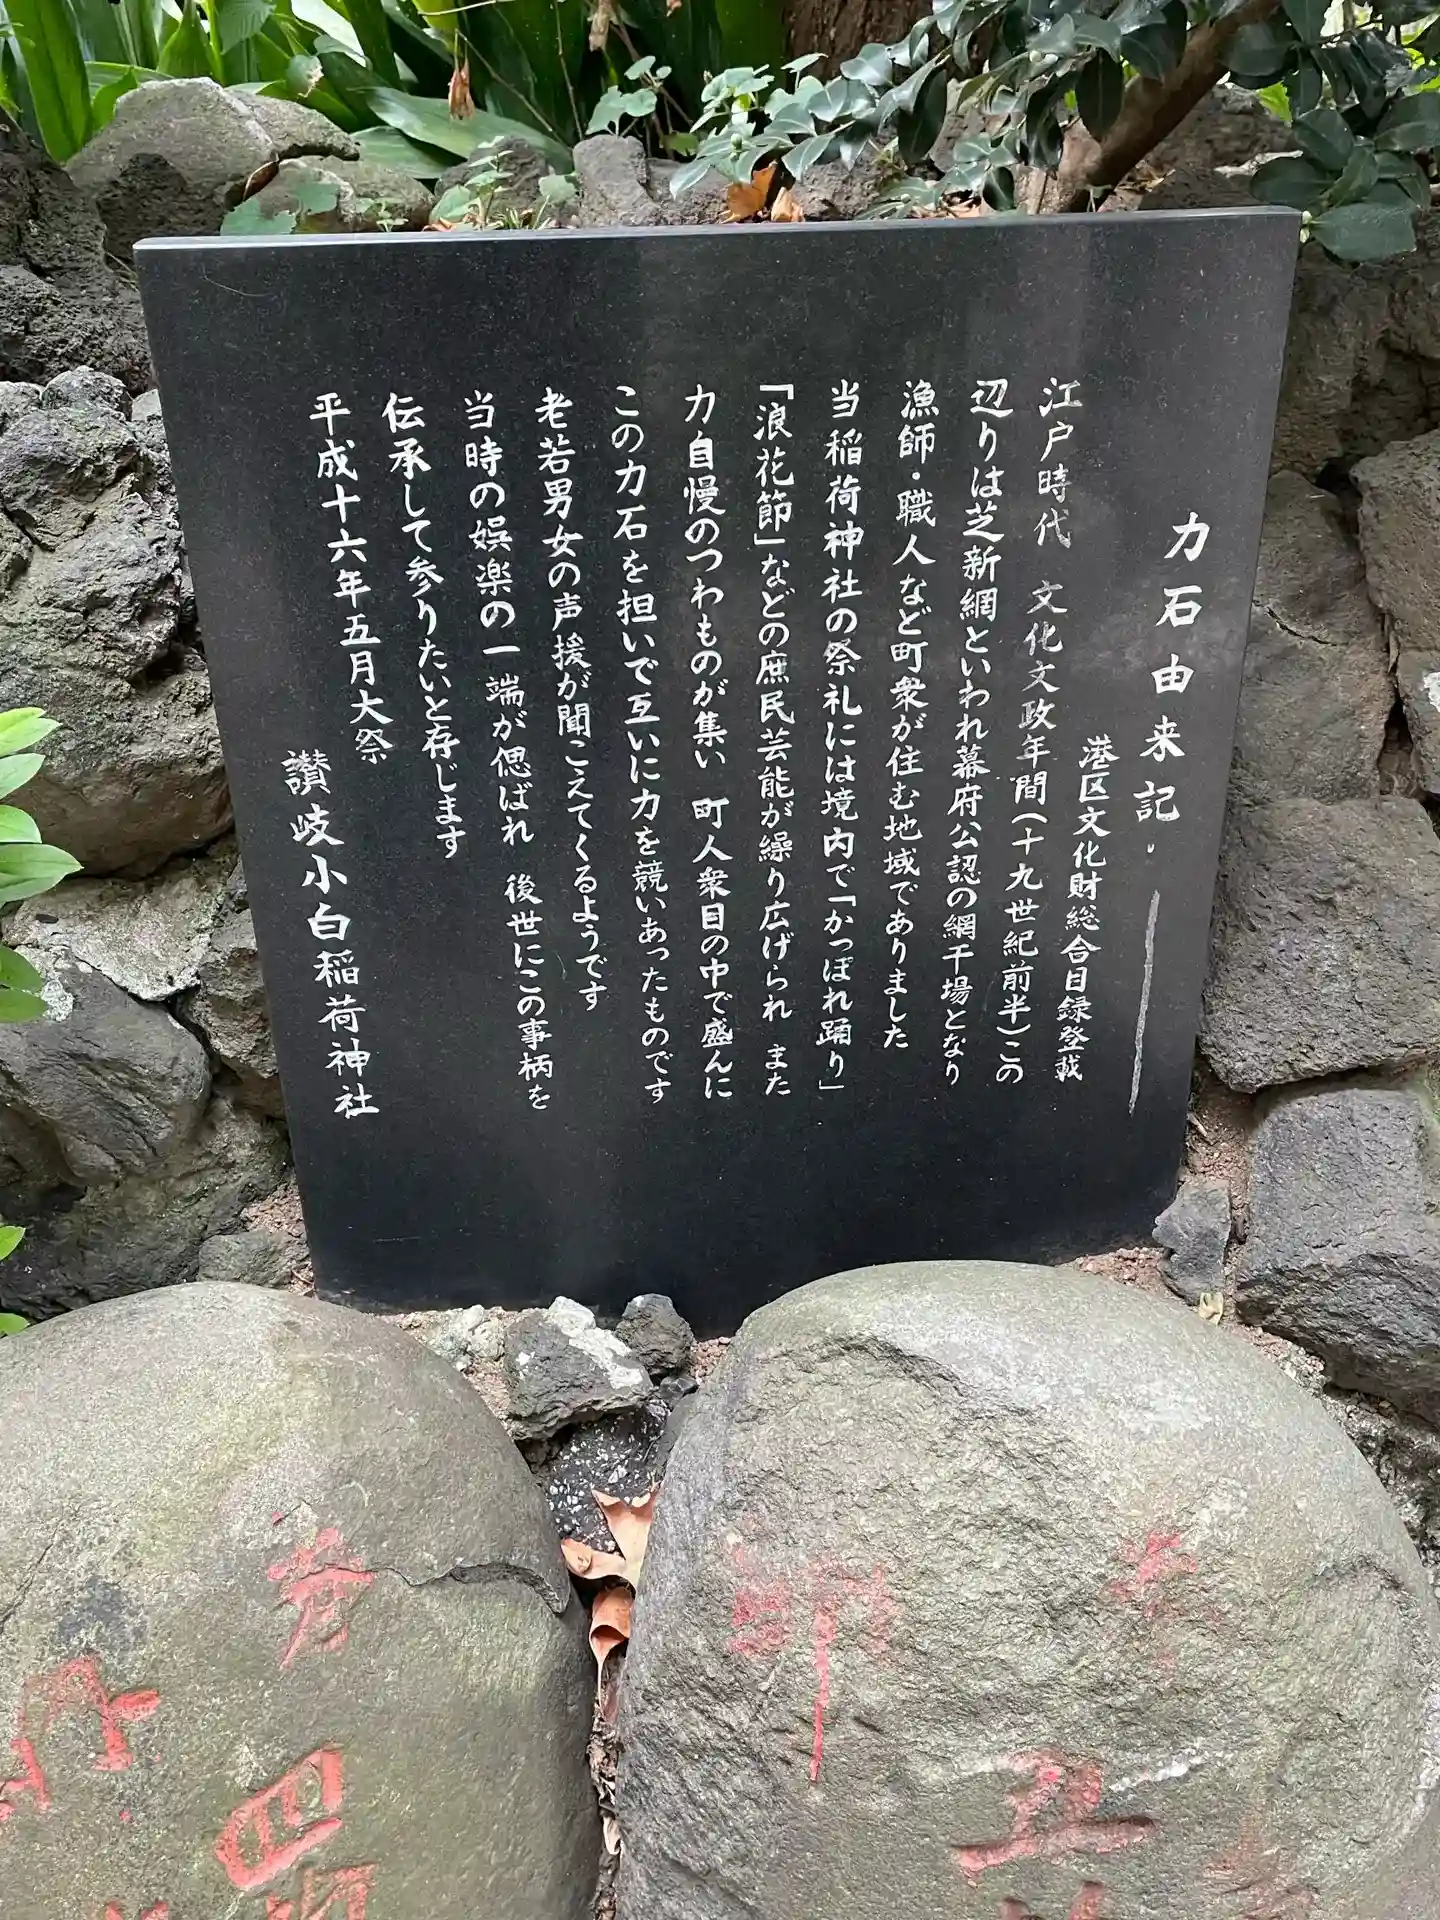 力石由来記
港区文化財総合目録登載
江戸時代 文化文政年間(十九世紀前半)この
辺りは芝新網といわれ幕府公認の網干場となり
漁師・職人など町衆が住む地域でありました
当稲荷神社の祭礼には境内で「かっぽれ踊り」
「浪花節」などの庶民芸能が繰り広げられ また
力自慢のつわものが集い 町人衆目の中で盛んに
この力石を担いで互いに力を競いあったものです
老若男女の声援が聞こえてくるようです
当時の娯楽の一端が偲ばれ 後世にこの事柄を
伝承して参りたいと存じます
平成十六年五月大祭
讃岐小白稲荷神社
四
五